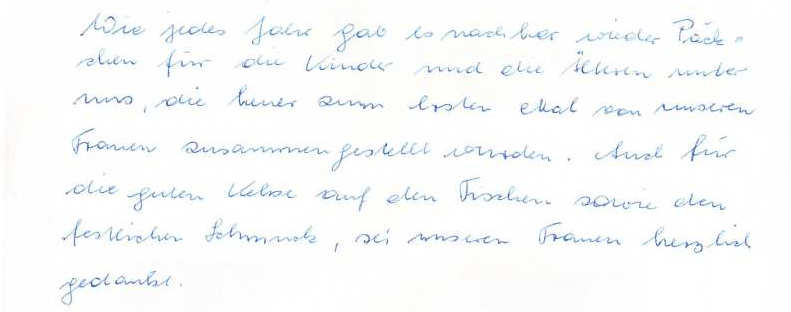 Wie jedes Jahr gab es nachher wieder Päck-
chen für die Kinder und die Älteren unter
uns, die heuer zum ersten Mal von unseren
Frauen zusammengestellt wurden. Auch für
die guten Kekse auf den Tischen sowie den
festlichen Schmuck, sei unseren Frauen herzlich
gedankt.